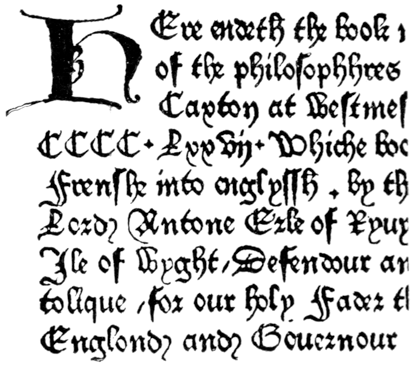 HEre endeth the book
of the philosophhres
Caxton at westmes
CCCC · Lxxvij · Whiche boo
Frenshe into englyssh . by th
Lord Antone Erle of Ryuy
Ile of Wyght / Defendour an
tolique / for our holy Fader th
Englond and Gouernour